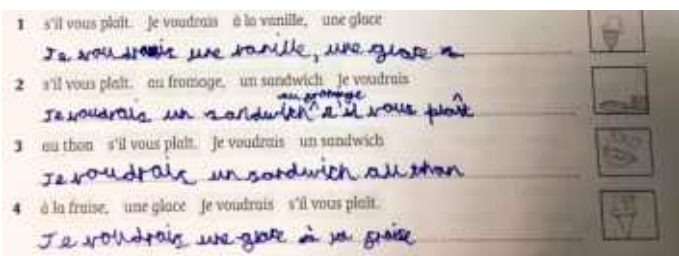 1 s'il vous plaît. Je voudrais à la vanille, une glace
Je voudrais une vanille, une glace
2 s'il vous plaît. au fromage, un sandwich Je voudrais
au fromage
Je voudrais un sandwich^ s'il vous plaît
3 au thon s'il vous plaît. Je voudrais un sandwich
Je voudrais un sandwich au than
4 à la fraise, une glace Je voudrais s'il vous plaît.
Je voudrais une glace à la fraise